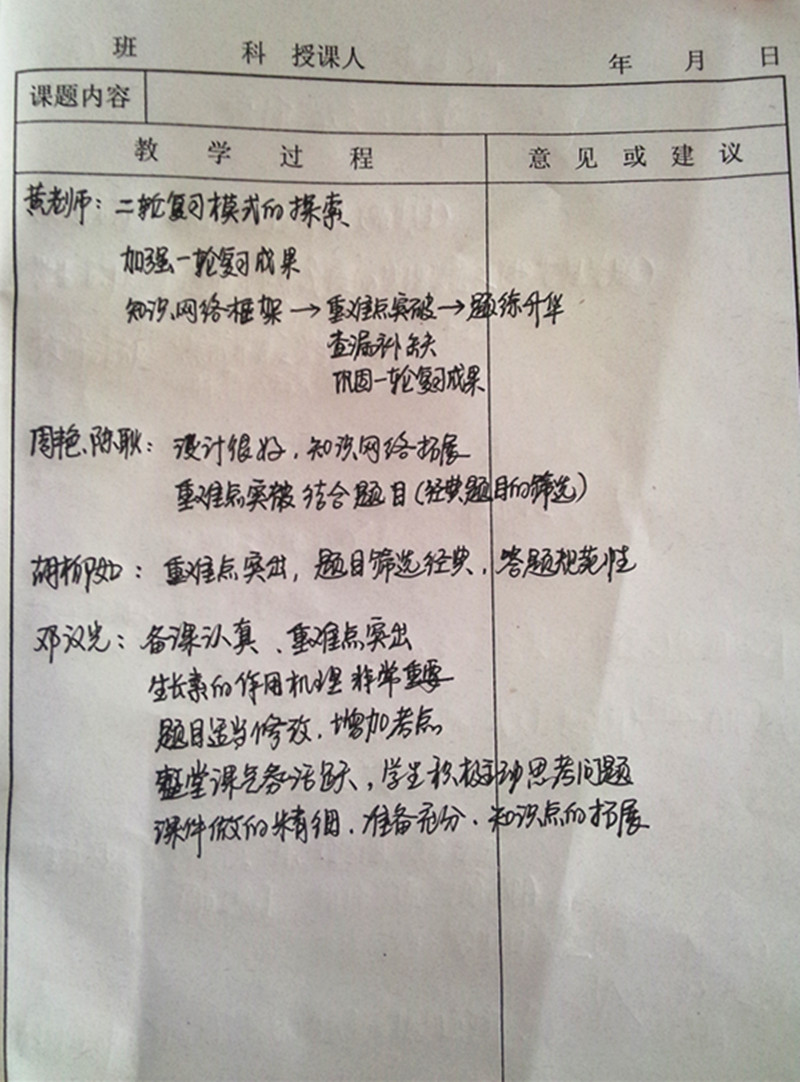 班 科 授课人 年 月 日
课题内容
教学过程 意见或建议
黄老师：二轮复习模式的探索
加强一轮复习成果
知识网络框架→重难点突破→题练升华
查漏补缺
巩固一轮复习成果
周艳、陈耿：设计很好，知识网络拓展
重难点突破 结合题目（经典题目的筛选）
胡柳如：重难点突出，题目筛选经典，答题规范性
邓议先：备课认真、重难点突出
生长素的作用机理非常重要
题目适当修改，增加考点
整堂课气氛活跃，学生积极主动思考问题
课件做的精细，准备充分，知识点的拓展